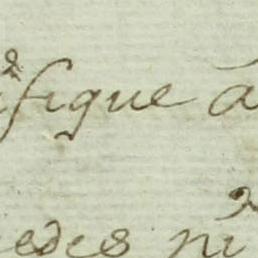 ifique a
edes ni